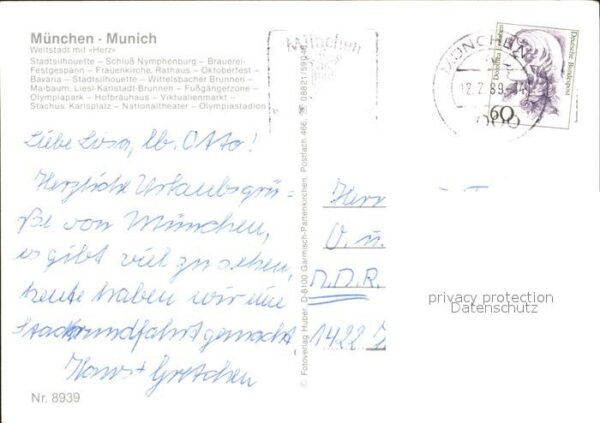 München - Munich
Weltstadt mit »Herz«
Stadtsilhouette – Schloß Nymphenburg – Brauerei-
Festgespann – Frauenkirche, Rathaus – Oktoberfest –
Bavaria – Stadtsilhouette – Wittelsbacher Brunnen –
Maibaum, Liesl-Karlstadt-Brunnen – Fußgängerzone –
Olympiapark – Hofbräuhaus – Viktualienmarkt –
Stachus, Karlsplatz – Nationaltheater – Olympiastadion
Liebe Lisa, lb. Otto!
Herzliche Urlaubsgrü-
ße von München,
es gibt viel zu sehen,
heute haben wir eine
Stadtrundfahrt gemacht.
Hans + Gretchen
Nr. 8939
© Fotoverlag Huber, D-8100 Garmisch-Partenkirchen, Postfach 466,
München
MÜNCHEN
12.7.89
000
Deutsche Bundespost
60
Herr
O. u.
D.D.R.
1422
privacy protection
Datenschutz